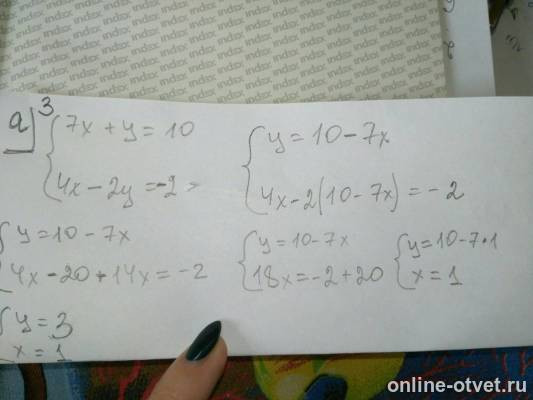 index index index index index index
а) 3
{ 7x + y = 10
{ 4x - 2y = -2
{ y = 10 - 7x
{ 4x - 2(10 - 7x) = -2
{ y = 10 - 7x
{ 4x - 20 + 14x = -2
{ y = 10 - 7x
{ 18x = -2 + 20
{ y = 10 - 7 • 1
{ x = 1
{ y = 3
{ x = 1
online-otvet.ru